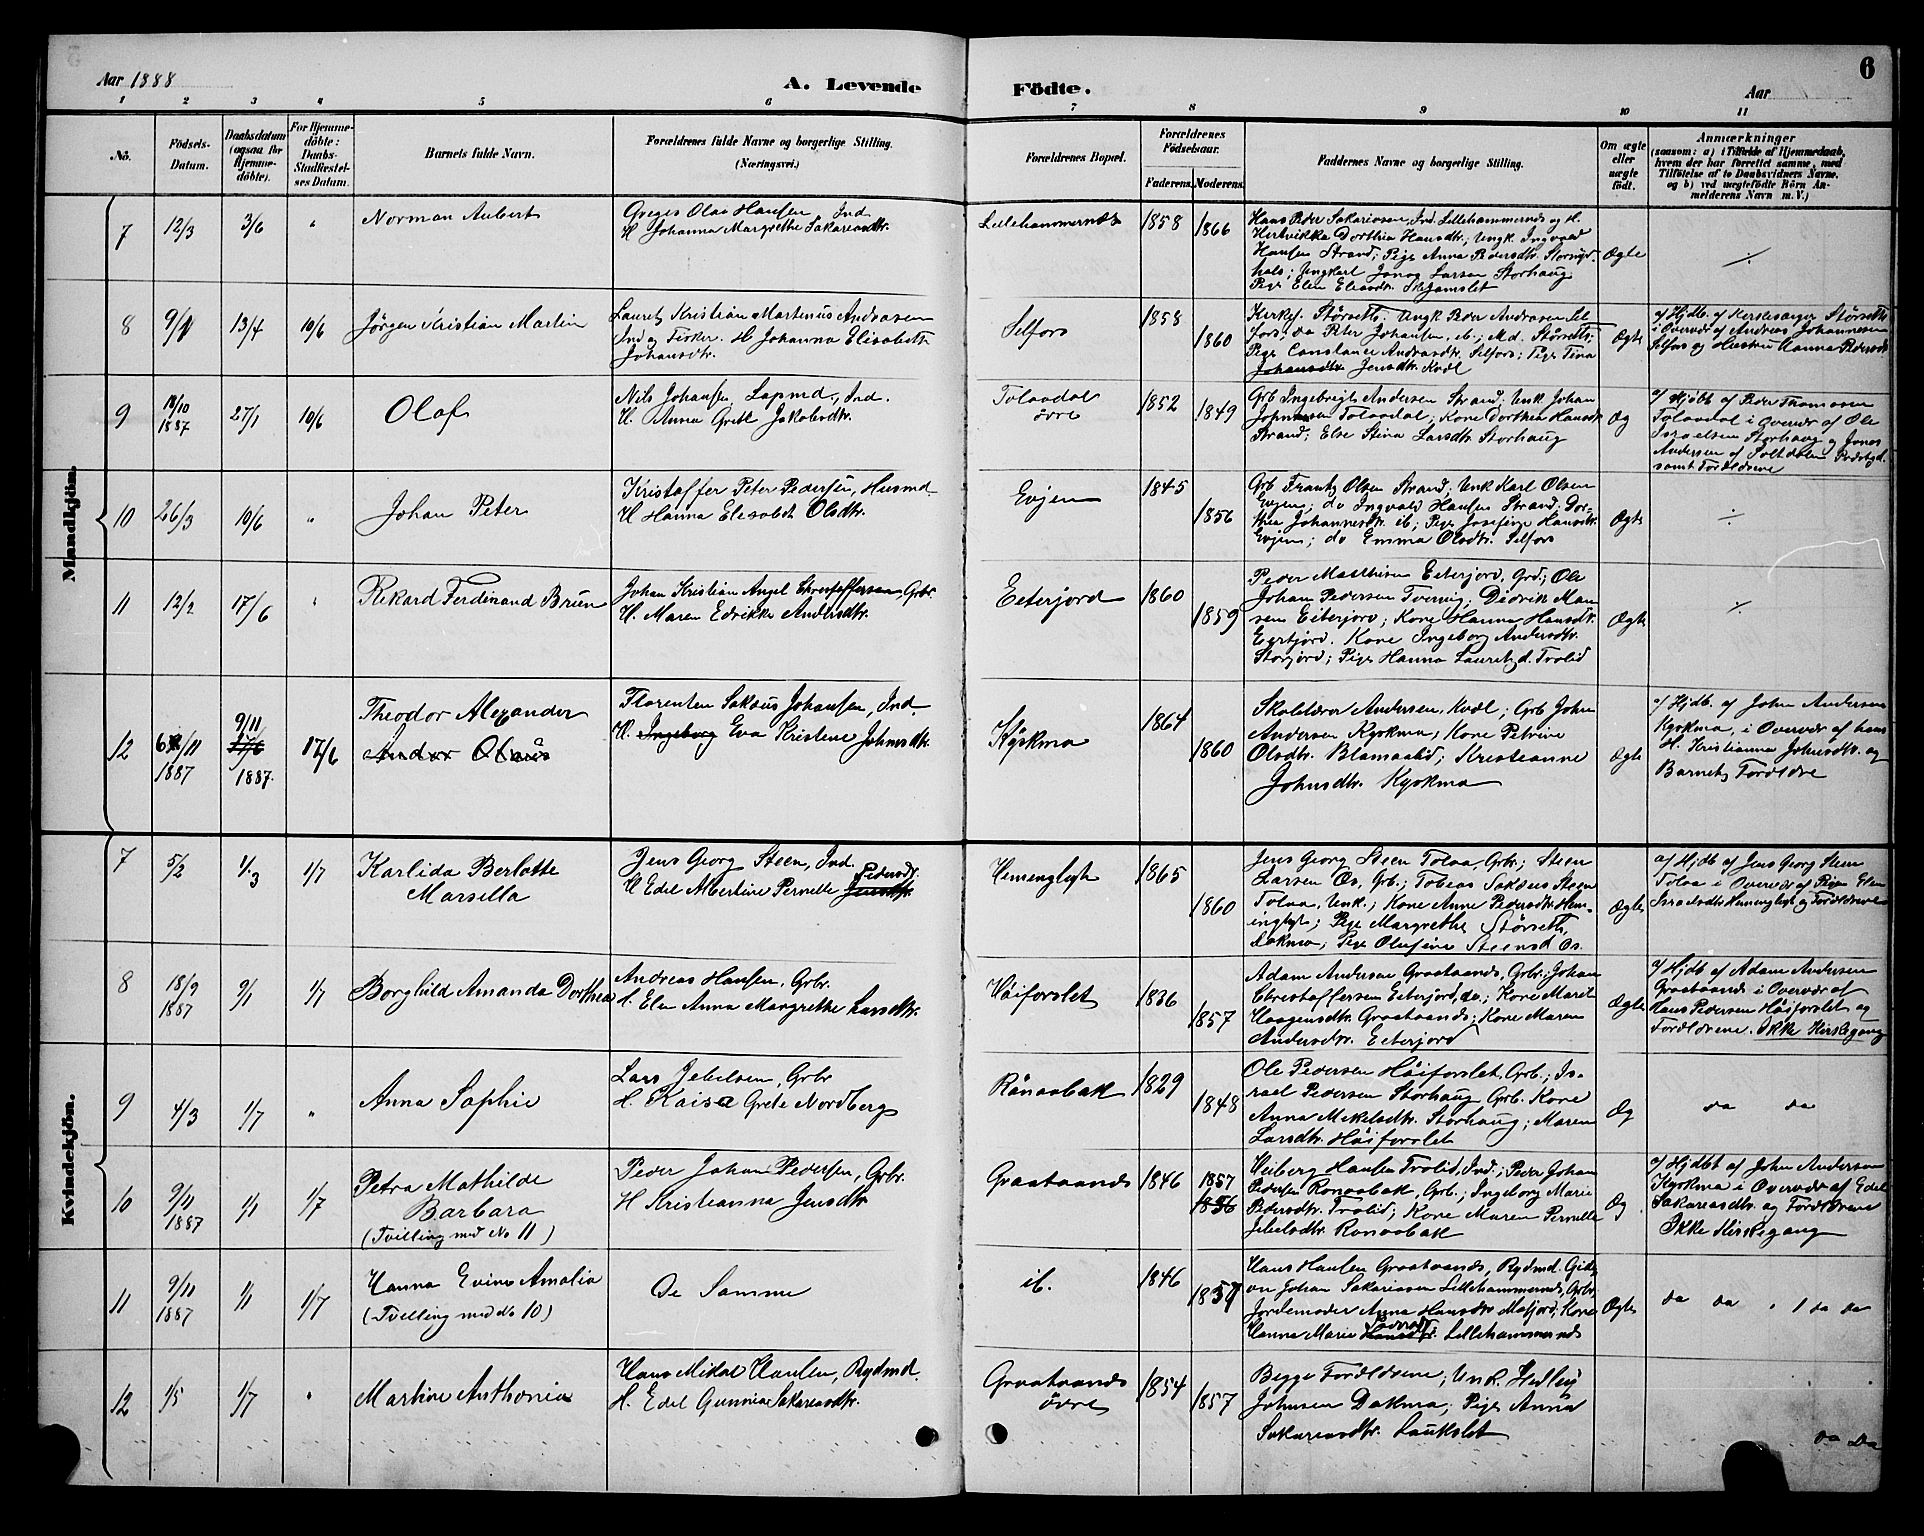 Aar 1888
A. Levende
Födte.
Aar
6
1 2 3 4 5 6 7 8 9 10 11
No.
Födsels-
Datum.
Daabsdatum
(ogsaa for
Hjemme-
döbte).
For Hjemme-
döbte:
Daabs-
Stadfæstel-
ses Datum.
Barnets fulde Navn.
Forældrenes fulde Navne og borgerlige Stilling.
(Næringsvei.)
Forældrenes Bopæl.
Forældrenes
Födselsaar.
Faderens.
Moderens.
Faddernes Navne og borgerlige Stilling.
Om ægte
eller
uægte
födt.
Anmærkninger
(saasom: a) i Tilfælde af Hjemmedaab,
hvem der har forrettet samme, med
Tilföielse af to Daabsvidners Navne,
og b) ved uægtefödte Börn An-
melderens Navn m. V.)
Mandkjön.
7 12/3 3/6 "
Norman Aubert
Greger Olai Hansen Ind
H Johanna Margrethe Sakariasdtr.
Lillehammernæs
1858 1866
Hans Peder Sakariasen Ind. Lillehammernæs og H.
Hertvikka Dorthea Hansdtr; Ungk. Ingvald
Hansen Strand; Pige Anna Pedersdtr.
Ungkarl Jonas Larsen Storhaug
Pige Elen
Ægte
÷
8 9/1 13/4 10/6
Jørgen Kristian Martin
Lauritz Kristian Martenus Andrasen
Ind og Fisker. H Johanna Elisabeth
Johansdtr.
Selfors
1858 1860
Kirkes. Størseth; Ungk Peder Andrasen Sel-
fors; do Peter Johansen, ib.; Md. Størseth;
Pige Constance Andrasdtr. Selfors; Pige Tina
Johansdtr Jensdtr. Kvæl
Ægte
a/ Hjdb. af Kirkesanger Størseth
i Overvær af Andreas Johannesen
Selfors og Hustru Hanna Pedersdtr
9 18/10 1887 27/1 10/6
Olaf
Nils Johansen, Lapmd., Ind.
H. Anna Grete Jakobsdtr.
Tolaadal
øvre
1852 1849
Grb Ingebrigt Andersen Strand; Unk Johan
Johnsen Tolaadal; Kone Dorthea Hansdtr
Strand; Else Stina Larsdtr Storhaug
Æg
a/ Hjdbt af Peder Thomassen
Tolaadal i Overvær af Ole
Israelsen Storhaug og Jonas
Andersen af Saltdalen Præstegd.
samt Forældrene
10 26/3 10/6 "
Johan Peter
Kristaffer Peter Pedersen, Husmd
H Hanna Elisabet Olsdtr.
Evjen
1845 1856
Grb Frantz Olsen Strand; Unk Karl Olsen
Evjen; do Ingvald Hansen Strand; Dor-
thea Johannesdtr. ib; Pige Josefine Hansdtr.
Evjen; do Emma Olsdtr. Selfors
Ægte
÷
11 12/2 17/6 "
Rikard Ferdinand Bruun
Johan Kristian Angel Christoffersen Grbr.
H. Maren Edrikke Andersdtr.
Eeterjord
1860 1859
Peder Matthisen Eeterjord, Grd; Ole
Johan Pedersen Tverrvig, Didrik Mon-
sen Eiterjord; Kone Hanna Hansdtr.
Eeterjord. Kone Ingeborg Andersdtr.
Storjord; Pige Hanna Lauritzd. Trolid
Ægte
÷
12 6/11 1887 9/11 17/6 1887. 17/6
Theodor Alexander
Andor Olaus
Florenten Sakæus Johansen, Ind.
H. Ingeborg Eva Kristine Johnsdtr.
Kjøkmo
1864 1860
Skolelærer Andersen, Kvæl; Grb John
Andersen Kjøkmo; Kone Petrine
Olsdtr. Blomaalid; Kristianne
Johnsdtr. Kjøkmo
Ægte
a/ Hjdb. af John Andersen
Kjøkmo, i Overvær af hans
H. Kristianna Johnsdtr. og
Barnets Forældre
Kvindekjön.
7 5/2 1/3 1/7
Karlida Berlotte
Marsella
Jens Georg Steen, Ind.
H Edel Albertine Pernelle Jensdtr. Pedersdtr.
Hemenglegt
1865 1860
Jens Georg Steen Tolaa, Grb.; Steen
Larsen Os, Grb.; Tobias Sakæus Steen
Tolaa, Unk.; Kone Anne Pedersdtr. Hem-
inglegt; Pige Margrethe Størseth,
Dokmo; Pige Olufine Steensd Os.
Ægte
a/ Hjdb af Jens Georg Steen
Tolaa i Overvær af Pigen Elen
Israelsdtr Hemenglegt og Forældrene
8 18/9 1887 9/1 1/7
Borghild Amanda Dorthea
Andreas Hansen, Grbr.
H. Elen Anna Margrethe Larsdtr.
Höiforslet
1836 1857
Adam Andersen Graataands, Grbr.; Johan
Christoffersen Eiterjord, do.; Kone Marit
Haagensdtr. Graataands; Kone Maren
Andersdtr. Eeterjord
Ægte
a/ Hjdb af Adam Andersen
Graataands i Overvær af
Hans Pedersen Höiforslet og
Forældrene. Ikke Kirkegang
9 4/3 1/7 "
Anna Sophie
Lars Jebelsen, Grbr
H. Kaisa Grete Nordberg
Rönaabak
1829 1848
Ole Pedersen Höiforslet, Grb.; Is-
rael Pedersen Storhaug Grb. Kone
Anna Mikelsdtr. Storhaug; Maren
Larsdtr. Höiforslet
Æg
da da
10 9/11 1887 1/1 1/7
Petra Mathilde
Barbara
(Tvilling med No 11)
Peder Johan Pedersen, Grbr.
H Kristianna Jensdtr
Graataands
1846 1857 1856
Heiberg Hansen Trolid, Ind.; Peder Johan
Pedersen Rönaabak, Grb.; Ingeborg Marie
Pedersdtr. Trolid; Kone Maren Pernelle
Jebelsdtr Ronaabak
Æg
a/ Hjdbt af John Andersen
Kjøkmo i Overvær af Edel
Sakariasdtr. og Forældrene
Ikke Kirkegang
11 9/11 1887 1/1 1/7
Hanna Evine Amalia
(Tvilling med No 10)
De Samme
ib.
1846 1857
Hans Hansen Graataands, Rydmd. Gide-
on Johan Sakariasen Lillehammernæs, Grbr.
Jordemoder Anna Hansdtr Mofjord; Kone
Hanna Marie Hansdtr. Pedersdtr. Lillehammernæs
Ægte
da da " 1 da da
12 1/5 1/7 "
Martine Anthonia
Hans Mikal Hansen, Rydmd.
H. Edel Gunnia Sakariasdtr.
Graataands
øvre
1854 1857
Begge Forældrene; Unk.
Johnsen Dokmo; Pige Anna
Sakariasdtr. Laukslet
da da